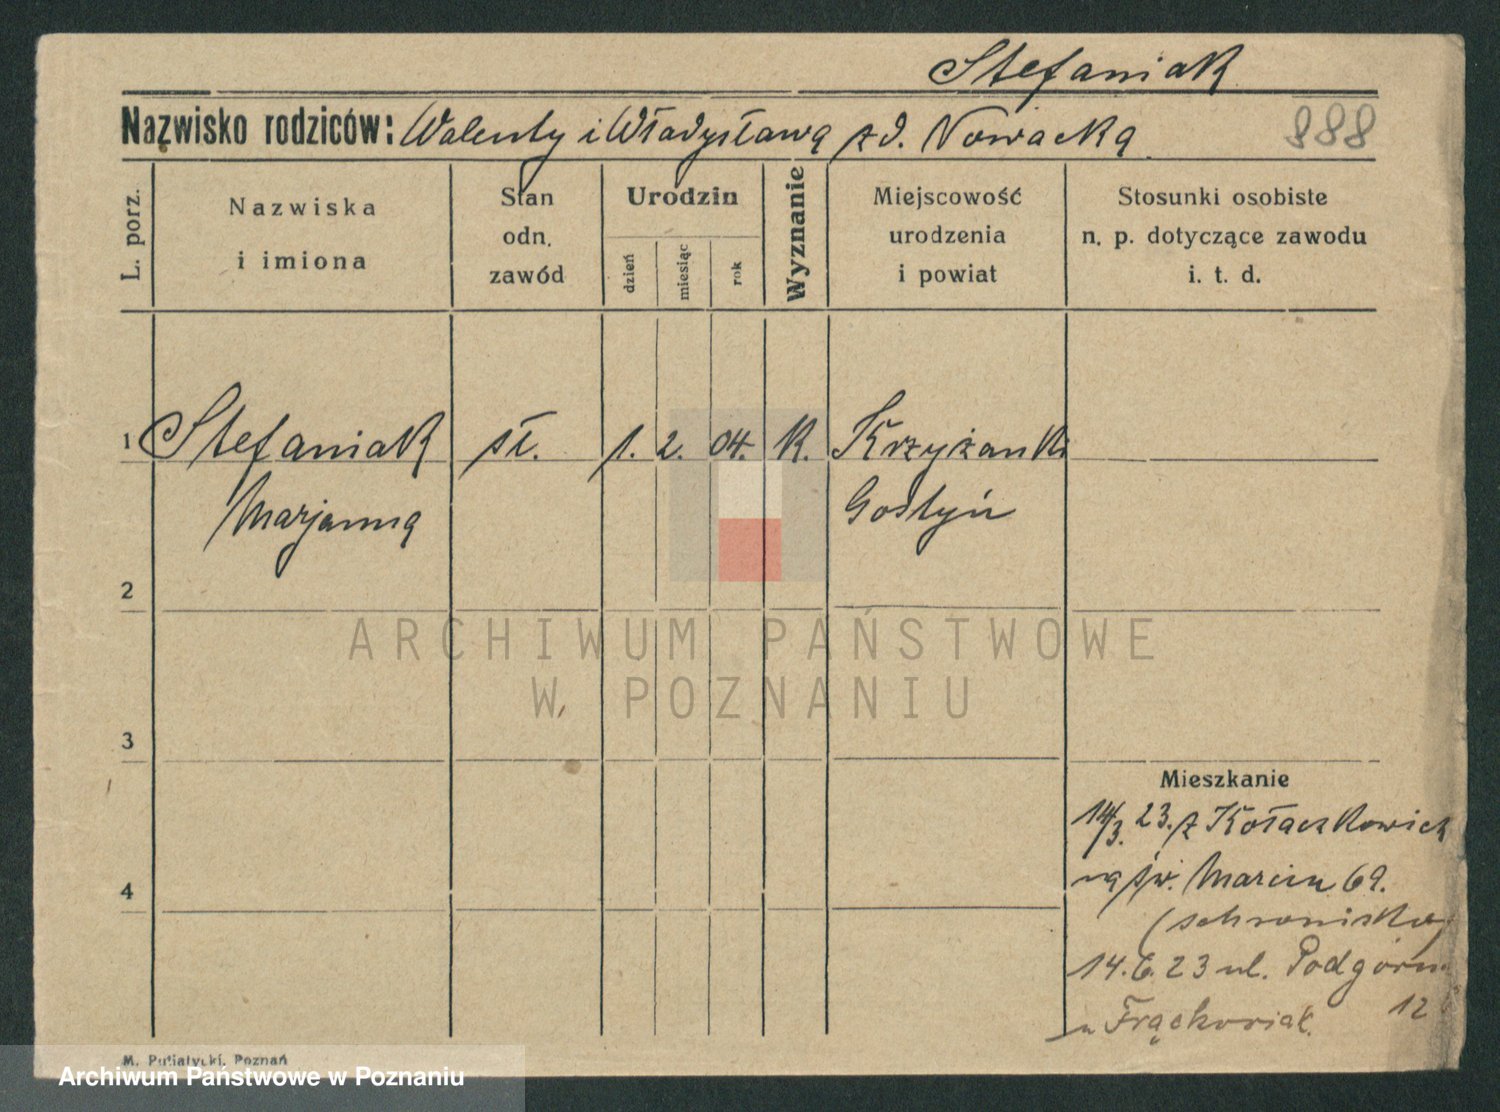 Stefaniak
Nazwisko rodziców: Walenty i Władysława zd. Nowacka
888
L. porz.
Nazwiska
i imiona
Stan
odn.
zawód
Urodzin
dzień
miesiąc
rok
Wyznanie
Miejscowość
urodzenia
i powiat
Stosunki osobiste
n. p. dotyczące zawodu
i. t. d.
1 Stefaniak sł. 1. 2. 04. K. Krzyżanki
Marjanna Gostyń
2
ARCHIWUM PAŃSTWOWE
W POZNANIU
3
Mieszkanie
14/3. 23. z Kołaczkowic
na św. Marcin 69.
4
(schronisko)
14.6.23 ul. Podgórna
12
u Frąckowiak.
M. Putiatycki, Poznań
Archiwum Państwowe w Poznaniu